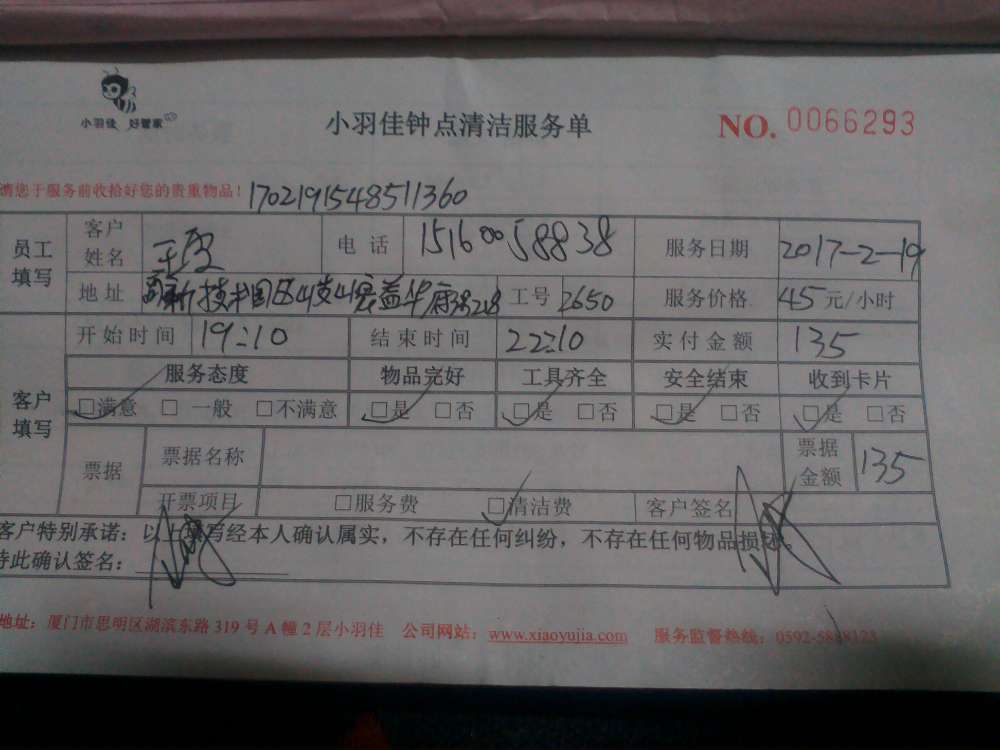 小羽佳 好管家
小羽佳钟点清洁服务单
NO. 0066293
请您于服务前收拾好您的贵重物品！1702191548511360
员工填写 客户姓名 王 电话 15160058838 服务日期 2017-2-19
地址 技术园区 工号 2650 服务价格 45元/小时
客户填写 开始时间 19:10 结束时间 22:10 实付金额 135
服务态度 物品完好 工具齐全 安全结束 收到卡片
□满意 □一般 □不满意 □是 □否 □是 □否 □是 □否 □是 □否
票据 票据名称 票据金额 135
开票项目 □服务费 □清洁费 客户签名
客户特别承诺：以上填写经本人确认属实，不存在任何纠纷，不存在任何物品损坏。
特此确认签名：
地址：厦门市思明区湖滨东路 319 号 A 幢 2 层小羽佳 公司网站：www.xiaoyujia.com 服务监督热线：0592-5888123